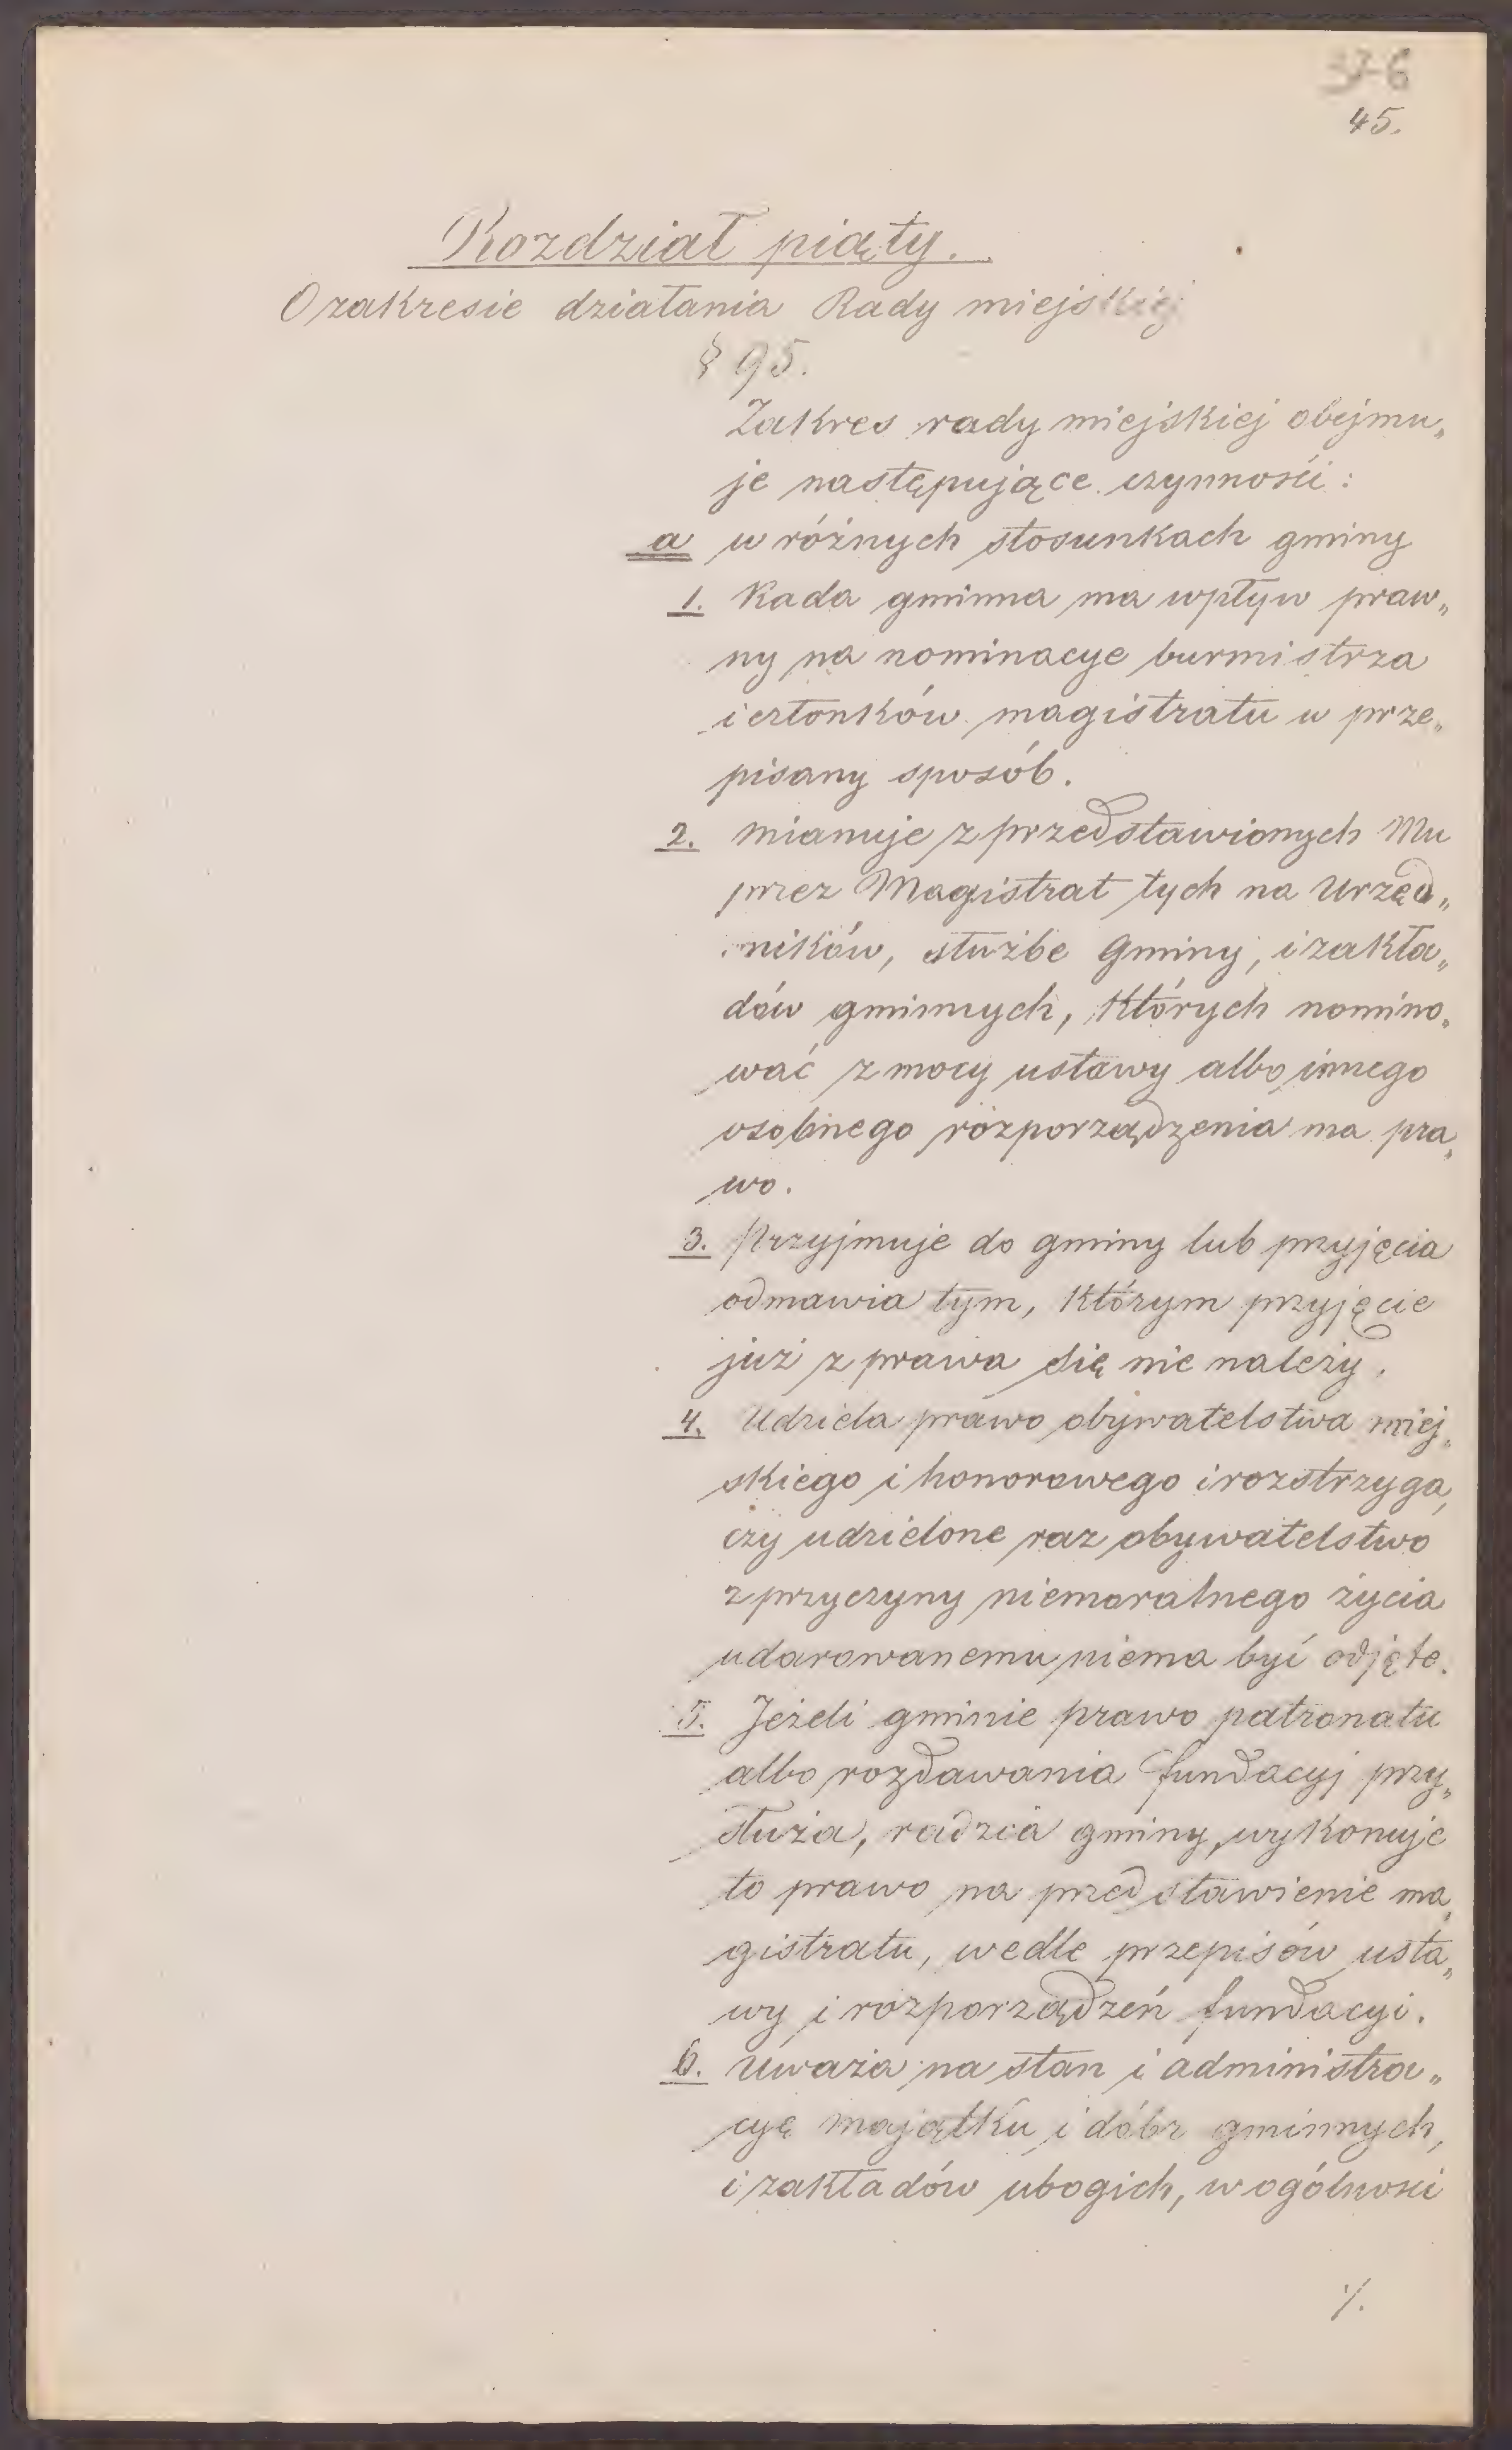 37-6
45.
Rozdział piąty.
O zakresie działania Rady miejskiej
§ 95.
Zakres rady miejskiej obejmu„
je następujące czynności:
a w różnych stosunkach gminy
1. Rada gminna ma wpływ praw„
ny na nominacye burmistrza
i członków magistratu w prze„
pisany sposób.
2. mianuje z przedstawionych Mu
przez Magistrat tych na Urzęd„
ników, służbe Gminy, i zakła„
dów gminnych, których nomino„
wać z mocy ustawy albo innego
osobnego rozporządzenia ma pra„
wo.
3. Przyjmuje do gminy lub przyjęcia
odmawia tym, którym przyjęcie
już z prawa się nie należy.
4. Udziela prawo obywatelstwa miej„
skiego i honorowego i rozstrzyga,
czy udzielone raz obywatelstwo
z przyczyny niemoralnego życia
udarowanemu niema być odjęte.
5. Jeżeli gminie prawo patronatu
albo rozdawania fundacyj przy„
służa, radzca gminy, wykonuje
to prawo na przedstawienie ma„
gistratu, wedle przepisów usta„
wy i rozporządzeń fundacyi.
6. Uważa na stan i administra„
cyę majątku i dóbr gminnych,
i zakładów ubogich, w ogólności
·/.